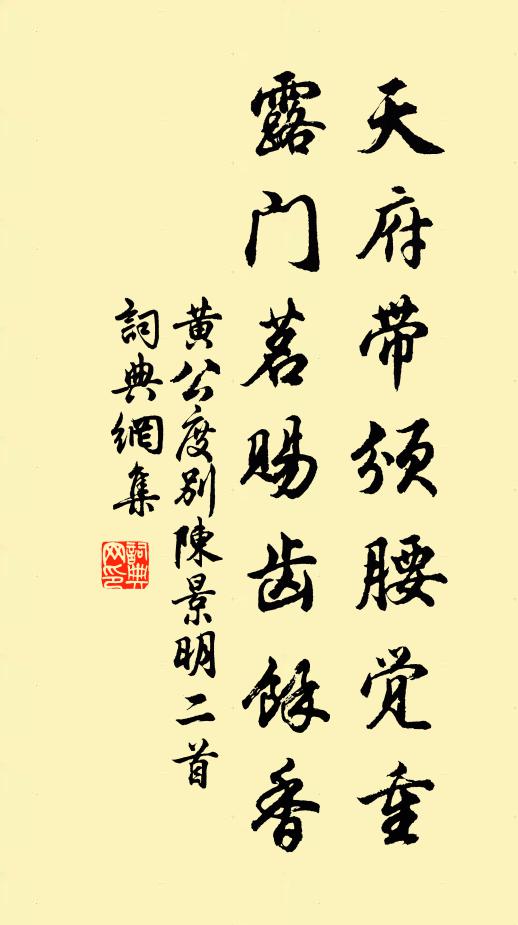 天府带颁腰觉重
露门茗赐齿馀香
黄公度别陳景明二首
詞典網集
詞典网印